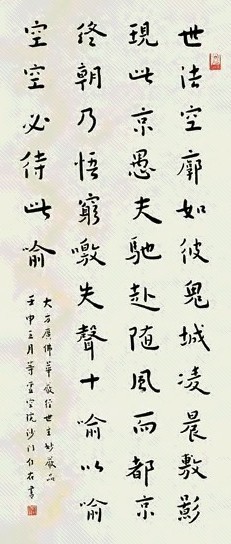 世法空廓如彼鬼城凌晨敷影
現此京愚夫馳赴随風而都京
終朝乃悟窮噭失聲十喻以喻
空空必待此喻
大方廣佛華嚴經世主妙嚴品
壬申三月空院沙门書